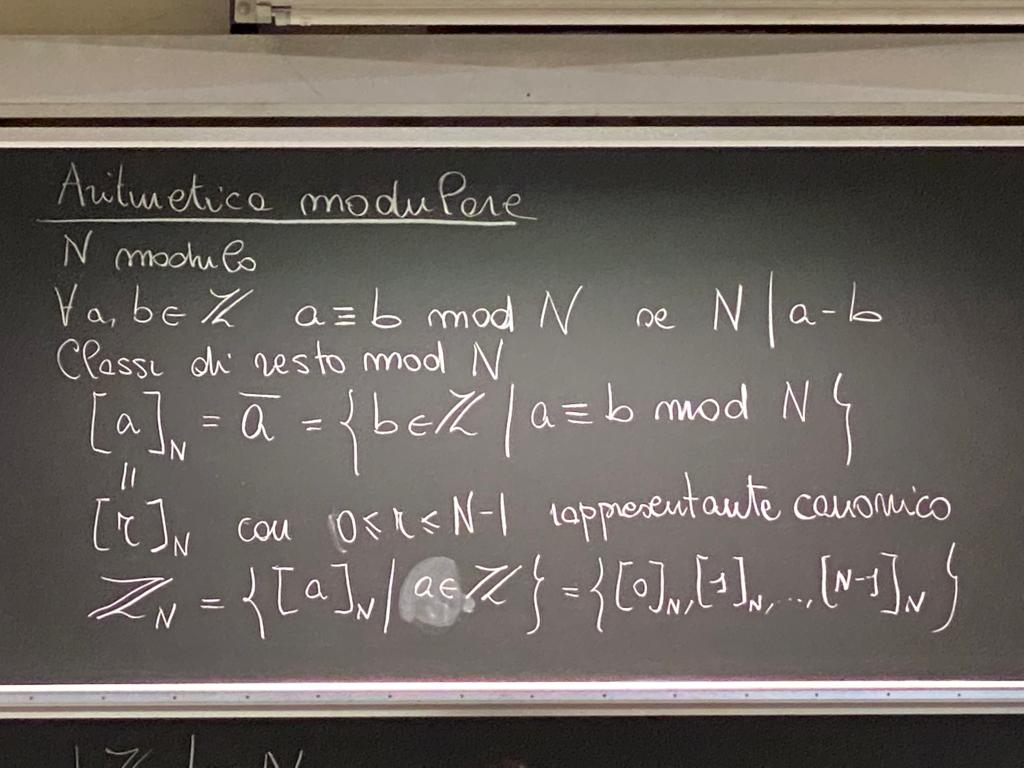 Aritmetica modulare
N modulo
∀ a, b ∈ ℤ a ≡ b mod N se N | a - b
Classi di resto mod N
[a]_N = ā = { b ∈ ℤ | a ≡ b mod N }
=
[r]_N con 0 ≤ r ≤ N-1 rappresentante canonico
ℤ_N = { [a]_N | a ∈ ℤ } = { [0]_N, [1]_N, ..., [N-1]_N }